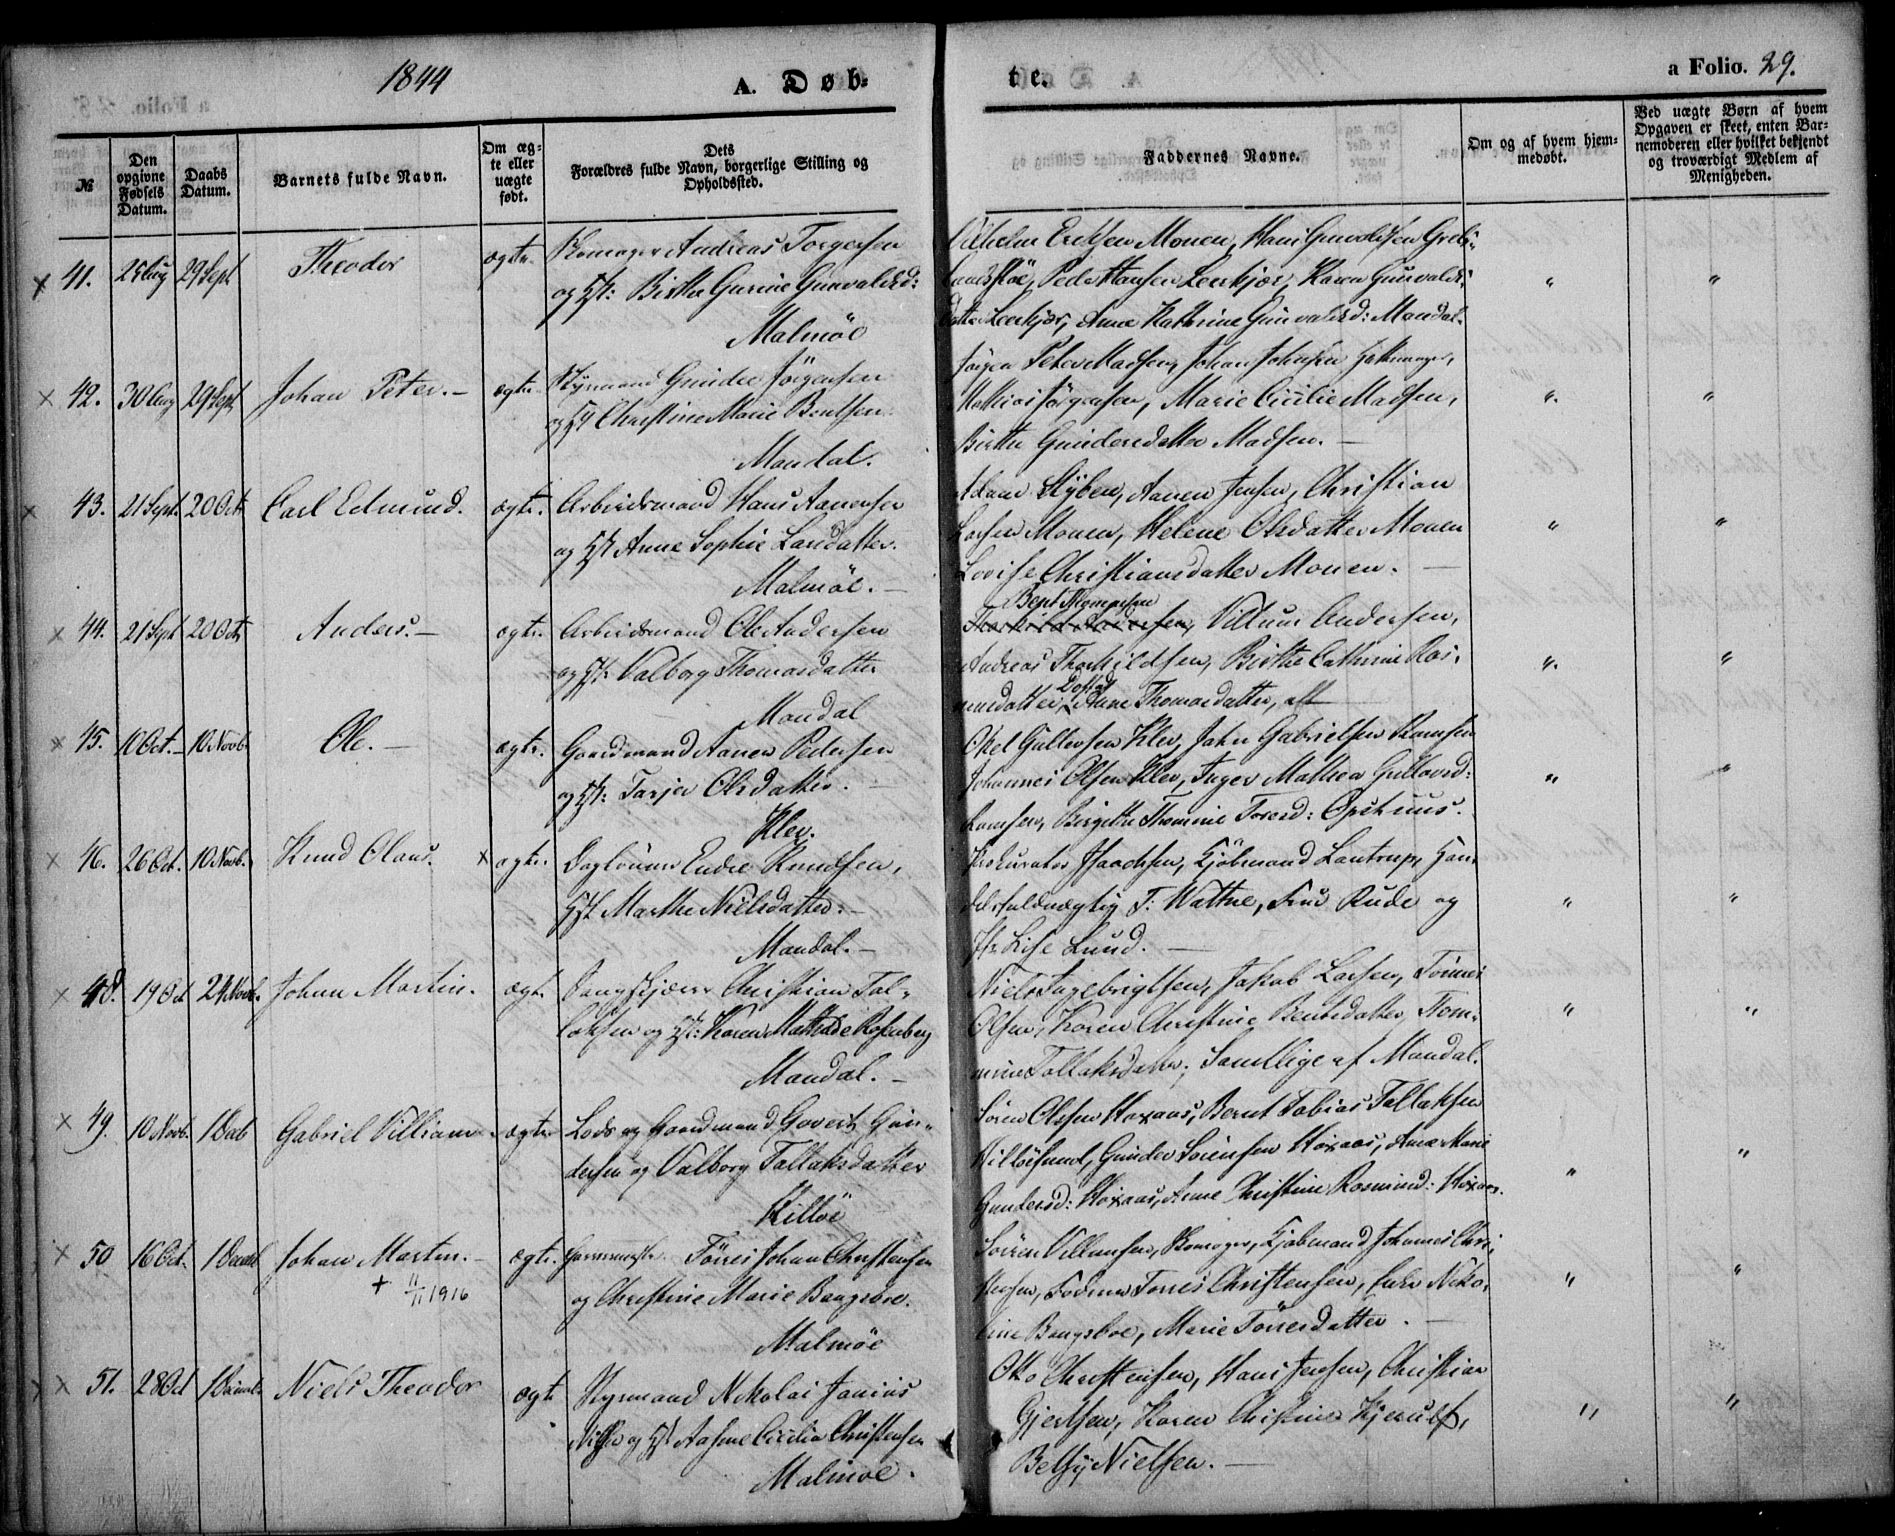 1844
A. Døb-
te.
a Folio. 29.
№
Den opgivne Fødsels Datum.
Daabs Datum.
Barnets fulde Navn.
Om ægte eller uægte født.
Dets Forældres fulde Navn, borgerlige Stilling og Opholdssted.
Faddernes Navne.
Om og af hvem hjemmedøbt.
Ved uægte Børn af hvem Opgaven er skeet, enten Barnemoderen eller hvilket bekjendt og troværdigt Medlem af Menigheden.
41. 25 Aug 29 Sept Theodor ægte. Skomager Andreas Torgersen
og Hst: Birthe Gurine Gunvaldsd:
Malmöe
Vilhelm Eriksen Monen, Hans Gunvaldsen
Peder Hansen Leerkjær, Karen Gunvalds
datter Leerkjær, Anne Kathrine Gunvaldsd: Mandal.
42. 30 Aug 29 Sept Johan Peter. ægte. Styrmand Gunder Jörgensen
og Hst Christine Marie Bentsen.
Mandal.
Jörgen Peter Madsen, Johan Johnsen
Mathias Jörgensen, Marie Cicilie Madsen,
Birthe Gundersdatter Madsen.
43. 21 Sept. 20 Oct Carl Edmund. ægte. Arbeidsmand Hans Aanensen
og Hst Anne Sophie Larsdatter.
Malmöe.
Adam Nyben, Aanen Jensen, Christian
Larsen Monen, Helene Olsdatter Monen
Lovise Christiansdatter Monen.
44. 21 Sept 20 Oct Anders. ægte. Arbeidsmand Ole Andersen
og Hst. Valborg Thomasdatter
Mandal
Bent Thomassen
Villum Andersen,
Andreas Thorkildsen, Birthe Cathrine Ras-
musdatter, Anne Thomasdatter, alt
45. 10 Oct. 10 Novb. Ole. ægte. Gaardmand Aanen Pedersen
og Hst: Tarjer Olsdatter.
Klev.
Gullovsen Klev, John Gabrielsen
Johannes Olsen Klev, Inger Mathea Gullovsd:
Birgithe Thomine Toresd: Opshuus.
46. 26 Oct. 10 Novb. Knud Olaus. x ægte. Daglönner Endre Knudsen,
Hst Marthe Nielsdatter.
Mandal.
Prokurator Isaachsen, Kjöbmand Lantrup, Han-
delsfuldmægtig F: Wattne, Fru Rude og
Jfr Lise Lund.
48. 19 Oct 24 Novb. Johan Martin. ægt. Christian Tal-
laksen og Hst: Karen Mathilde Rosenberg
Mandal.
Niels Ingebrigtsen, Jakob Larsen, Tönnes
Olsen, Karen Christine Bentsdatter, Tom-
mine Tallaksdatter; Samtlige af Mandal.
49. 10 Novb. 1 Deb Gabriel Villiam ægte Lods og Gaardmand Govert Gun-
dersen og Valborg Tallaksdatter
Hillöe
Sören Olsen Haxaas, Bernt Tobias Tallaksen
Hillöesund, Gunder Sörensen Haxaas, Anne Marie
Gundersd: Haxaas, Anne Christine Rasmusd: Haxaas.
50 16 Oct. 1 Decmb Johan Martin. ægte. Havnemester Törres Johan Christensen
+ 11/11 1916
og Christine Marie Bangsboe.
Malmöe
Sören Villumsen, Skomager, Kjöbmand Johannes Chri-
stensen, Torres Christensen, Niko-
line Bangsboe, Marie Törresdatter.
51. 28 Oct 1 Decmb. Niels Theodor ægt Styrmand Nikolai Janius
Nilsen og Hst Aasene Cicilia Christensen
Malmöe.
Otto Christensen, Hans Jensen, Christian
Gjertsen, Karen Christine Kjerulf,
Betsy Nielsen.